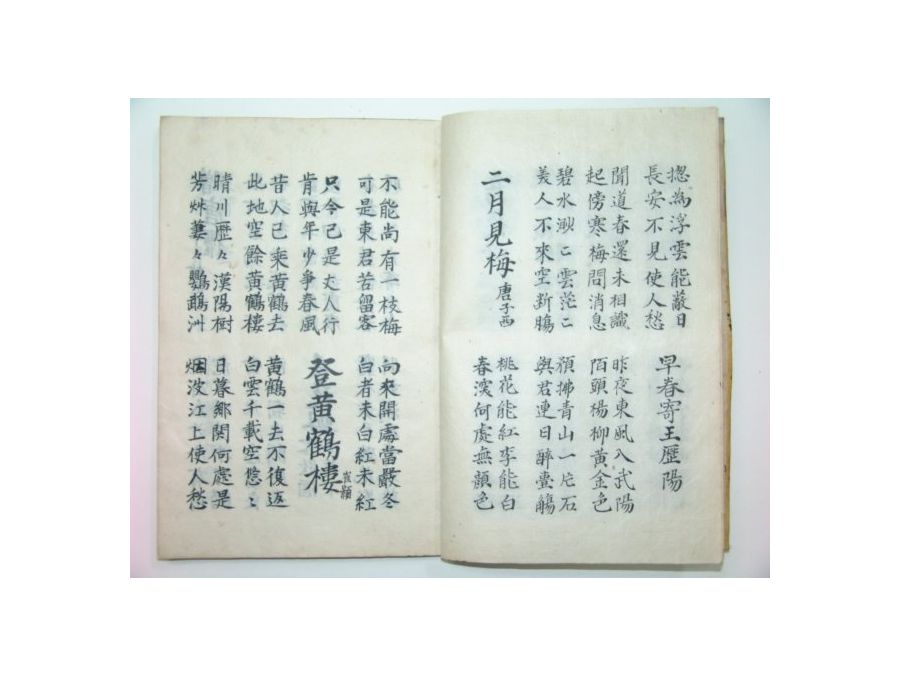 摠為浮雲能蔽日
長安不見使人愁
早春寄王歷陽
聞道春還未相識
起傍寒梅問消息
昨夜東風入武陽
陌頭楊柳黃金色
碧水渺二雲茫二
美人不來空斷腸
預拂青山一片石
與君連日醉壺觴
二月見梅 唐子西
桃花能紅李能白
春深何處無顏色
不能尚有一枝梅
可是東君苦留客
向來開處當嚴冬
白者未白紅未紅
只今已是丈人行
肯與年少爭春風
登黃鶴樓 崔顥
昔人已乘黃鶴去
此地空餘黃鶴樓
黃鶴一去不復返
白雲千載空悠二
晴川歷々漢陽樹
芳艸萋々鸚鵡洲
日暮鄉関何處是
烟波江上使人愁